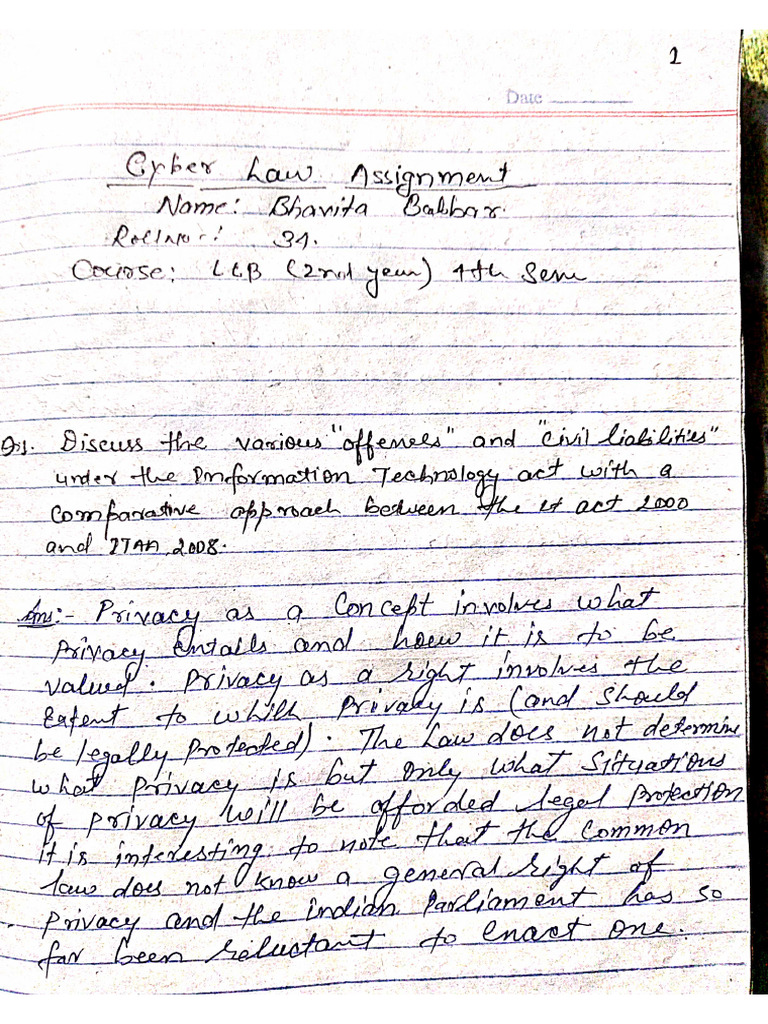 1
Date
Cyber Law Assignment
Name: Bhavita Babbar.
Roll No:- 34.
Course: LLB (2nd year) 4th Sem
Qs1. Discuss the various "offences" and "civil liabilities"
under the Information Technology act with a
comparative approach between the It act 2000
and ITAA 2008.
Ans:- Privacy as a Concept involves what
Privacy Entails and how it is to be
valued. Privacy as a right involves the
Extent to which Privacy is (and should
be legally Protected). The Law does not determine
what privacy is but only what Situations
of privacy will be afforded legal Protection
it is interesting to note that the Common
law does not know a general right of
privacy and the indian Parliament has so
far been reluctant to enact one.